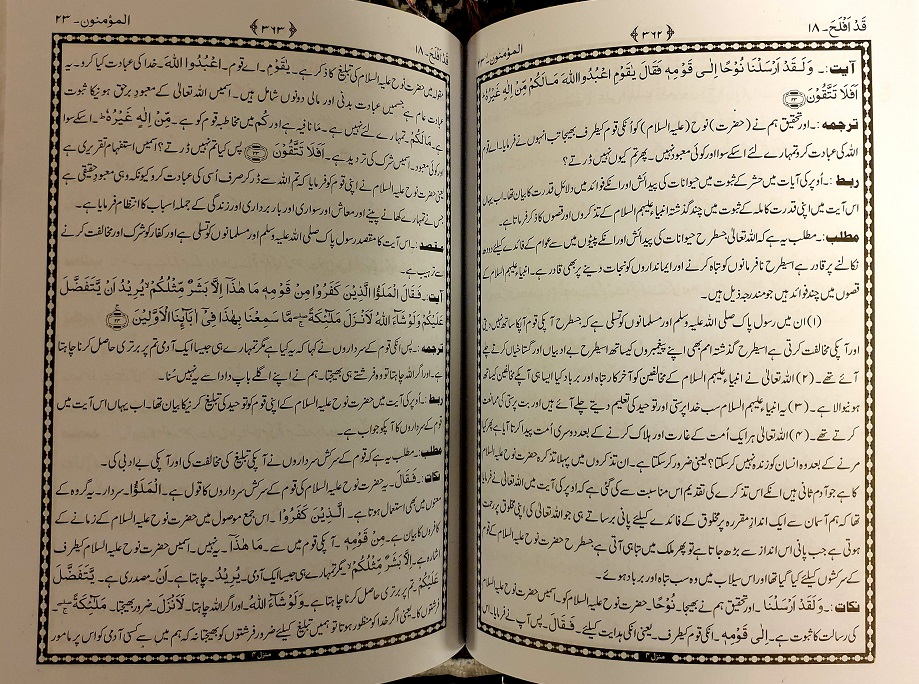 قَدْ اَفْلَحَ۔ ۱۸
﴿۳۶۲﴾
المؤمنون۔ ۲۳
آیت:۔ وَلَقَدْ اَرْسَلْنَا نُوْحًا اِلٰی قَوْمِهٖ فَقَالَ یٰقَوْمِ اعْبُدُوا اللّٰهَ مَالَکُمْ مِّنْ اِلٰهٍ غَیْرُهٗ
اَفَلَا تَتَّقُوْنَ ﴿۲۳﴾
ترجمہ:۔ اور تحقیق ہم نے (حضرت) نوح (علیہ السلام) کو اُنکی قوم کیطرف بھیجا تب انہوں نے فرمایا۔ اے قوم
اللہ کی عبادت کرو تمہارے لئے اسکے سوا اور کوئی معبود نہیں۔ پھر تم کیوں نہیں ڈرتے؟
ربط:۔ اُوپر کی آیات میں حشر کے ثبوت میں حیوانات کی پیدائش اور انکے فوائد میں دلائل قدرت کا بیان تھا۔ اب یہاں
اس آیت میں اپنی قدرت کاملہ کے ثبوت میں چند گذشتہ انبیاء علیہم السلام کے تذکروں اور قصوں کا ذکر فرماتا ہے۔
مطلب:۔ مطلب یہ ہے کہ اللہ تعالیٰ جسطرح حیوانات کی پیدائش اور انکے پیٹوں میں سے عوام کے فائدے کیلئے دودھ
نکالنے پر قادر ہے اسیطرح نافرمانوں کو تباہ کرنے اور ایمانداروں کو نجات دینے پر بھی قادر ہے۔ انبیاء علیہم السلام کے
قصوں میں چند فوائد ہیں جو مندرجہ ذیل ہیں۔
(۱) ان میں رسول پاک صلی اللہ علیہ وسلم اور مسلمانوں کو تسلی ہے کہ جسطرح آپکی قوم آپکا ساتھ نہیں دیتی
اور آپکی مخالفت کرتی ہے اسیطرح گذشتہ امم بھی اپنے پیغمبروں کیساتھ اسیطرح بے ادبیاں اور گستاخیاں کرتے چلے
آئے تھے۔ (۲) اللہ تعالیٰ نے انبیاء علیہم السلام کے مخالفین کو آخر کار تباہ اور برباد کیا ایسا ہی آپکے مخالفین کیساتھ
ہونیوالا ہے۔ (۳) یہ انبیاء علیہم السلام سب خدا پرستی اور توحید کی تعلیم دیتے چلے آئے ہیں اور بت پرستی کی ممانعت
کرتے تھے۔ (۴) اللہ تعالیٰ ہر ایک اُمت کے غارت اور ہلاک کرنے کے بعد دوسری اُمت پیدا کرتا آیا ہے پھر کیا
مرنے کے بعد وہ انسان کو زندہ نہیں کرسکتا؟ یعنی ضرور کرسکتا ہے۔ ان تذکروں میں پہلا تذکرہ حضرت نوح علیہ السلام
کا ہے جو آدم ثانی ہیں انکے اس تذکرے کی تقدیم اس مناسبت سے کی گئی ہے کہ اوپر کی آیت میں اللہ تعالیٰ نے فرمایا
تھا کہ ہم آسمان سے ایک اندازِ مقررہ پر مخلوق کے فائدے کیلئے پانی برساتے ہیں جو اللہ تعالیٰ کی اپنی مخلوق پر رحمت
ہوتی ہے جب پانی اس انداز سے بڑھ جاتا ہے تو پھر ملک میں تباہی آتی ہے جسطرح حضرت نوح علیہ السلام کے قوم
کے سرکشوں کیلئے کیا گیا تھا اور اس سیلاب میں وہ سب تباہ اور برباد ہوئے۔
نکات:۔ وَلَقَدْ اَرْسَلْنَا۔ اور تحقیق ہم نے بھیجا۔ نُوْحًا۔ حضرت نوح علیہ السلام کو۔ آسمیں حضرت نوح علیہ السلام
کی رسالت کا ثبوت ہے۔ اِلٰی قَوْمِهٖ۔ انکی قوم کیطرف۔ یعنی انکی ہدایت کیلئے۔ فَقَالَ۔ پس آپ نے فرمایا۔ اس
منزل ۴
المؤمنون۔ ۲۳
﴿۳۶۳﴾
قَدْ اَفْلَحَ۔ ۱۸
مقول میں حضرت نوح علیہ السلام کی تبلیغ کا ذکر ہے۔ یٰقَوْمِ۔ اے قوم۔ اعْبُدُوا اللّٰهَ۔ خدا کی عبادت کیا کرو۔ یہ
عبادت عام ہے جسمیں عبادت بدنی اور مالی دونوں شامل ہیں۔ آسمیں اللہ تعالیٰ کے معبود برحق ہونیکا ثبوت
ہے۔ مَالَکُمْ۔ تمہارے لئے نہیں ہے۔ مَا نافیہ ہے اور کُم میں مخاطبہ قوم کو ہے۔ مِّنْ اِلٰهٍ غَیْرُهٗ۔ اسکے سوا
اور کوئی معبود۔ آسمیں شرک کی تردید ہے۔ اَفَلَا تَتَّقُوْنَ ﴿۲۳﴾ پس کیا تم نہیں ڈرتے؟ آسمیں استفہام تقریری ہے
یعنی حضرت نوح علیہ السلام نے اپنی قوم کو فرمایا کہ تم اللہ سے ڈر کر صرف اُسی کی عبادت کرو کیونکہ وہی معبود حقیقی ہے
جس نے تمہارے کھانے پینے اور معاش اور سواری اور بار برداری اور زندگی کے جملہ اسباب کا انتظام فرمایا ہے۔
مقصد:۔ اس آیت کا مقصد رسول پاک صلی اللہ علیہ وسلم اور مسلمانوں کو تسلی ہے اور کفار کو شرک اور مخالفت کرنے
سے ترہیب ہے۔
آیت:۔ فَقَالَ الْمَلَؤُا الَّذِیْنَ کَفَرُوْا مِنْ قَوْمِهٖ مَا هٰذَا اِلَّا بَشَرٌ مِّثْلُکُمْ یُرِیْدُ اَنْ یَّتَفَضَّلَ
عَلَیْکُمْ وَلَوْ شَآءَ اللّٰهُ لَاَنْزَلَ مَلٰٓئِکَةً مَّا سَمِعْنَا بِهٰذَا فِیْٓ اٰبَآئِنَا الْاَوَّلِیْنَ ﴿۲۴﴾
ترجمہ:۔ پس انکی قوم کے سرداروں نے کہا کہ یہ کیا ہے مگر تمہارے ہی جیسا ایک آدمی تم پر برتری حاصل کرنا چاہتا
ہے۔ اور اگر اللہ چاہتا تو وہ فرشتے ہی بھیجتا۔ ہم نے اپنے اگلے باپ دادا سے یہ نہیں سُنا۔
ربط:۔ اُوپر کی آیت میں حضرت نوح علیہ السلام کے اپنی قوم کو توحید کی تبلیغ کرنیکا بیان تھا۔ اب یہاں اس آیت میں
قوم کے سرداروں کا آپکو جواب ہے۔
مطلب:۔ مطلب یہ ہے کہ قوم کے سرکش سرداروں نے آپکی تبلیغ کی مخالفت کی اور آپکی بے ادبی کی۔
نکات:۔ فَقَالَ۔ یہ حضرت نوح علیہ السلام کی قوم کے سرکش سرداروں کا قول ہے۔ الْمَلَؤُا۔ سردار۔ یہ گروہ کے
معنوں میں بھی استعمال ہوتا ہے۔ الَّذِیْنَ کَفَرُوْا۔ اس جمع موصول میں حضرت نوح علیہ السلام کے زمانے کے
کافروں کا بیان ہے۔ مِنْ قَوْمِهٖ۔ آپکی قوم میں سے۔ مَا هٰذَا۔ یہ نہیں۔ آسمیں حضرت نوح علیہ السلام کیطرف
اشارہ ہے۔ اِلَّا بَشَرٌ مِّثْلُکُمْ۔ مگر تمہارے ہی جیسا ایک آدمی۔ یُرِیْدُ۔ چاہتا ہے۔ اَنْ۔ مصدری ہے۔ یَّتَفَضَّلَ
عَلَیْکُمْ۔ تم پر برتری حاصل کرنا چاہتا ہے۔ وَلَوْ شَآءَ اللّٰهُ۔ اور اگر اللہ چاہتا۔ لَاَنْزَلَ۔ ضرور بھیجتا۔ مَلٰٓئِکَةً۔
فرشتوں کا۔ یعنی اگر خدا کو منظور ہوتا تو ہمیں تبلیغ کیلئے ضرور فرشتوں کو بھیجتا نہ کہ ہم میں سے کسی آدمی کو اس پر مامور
منزل ۴